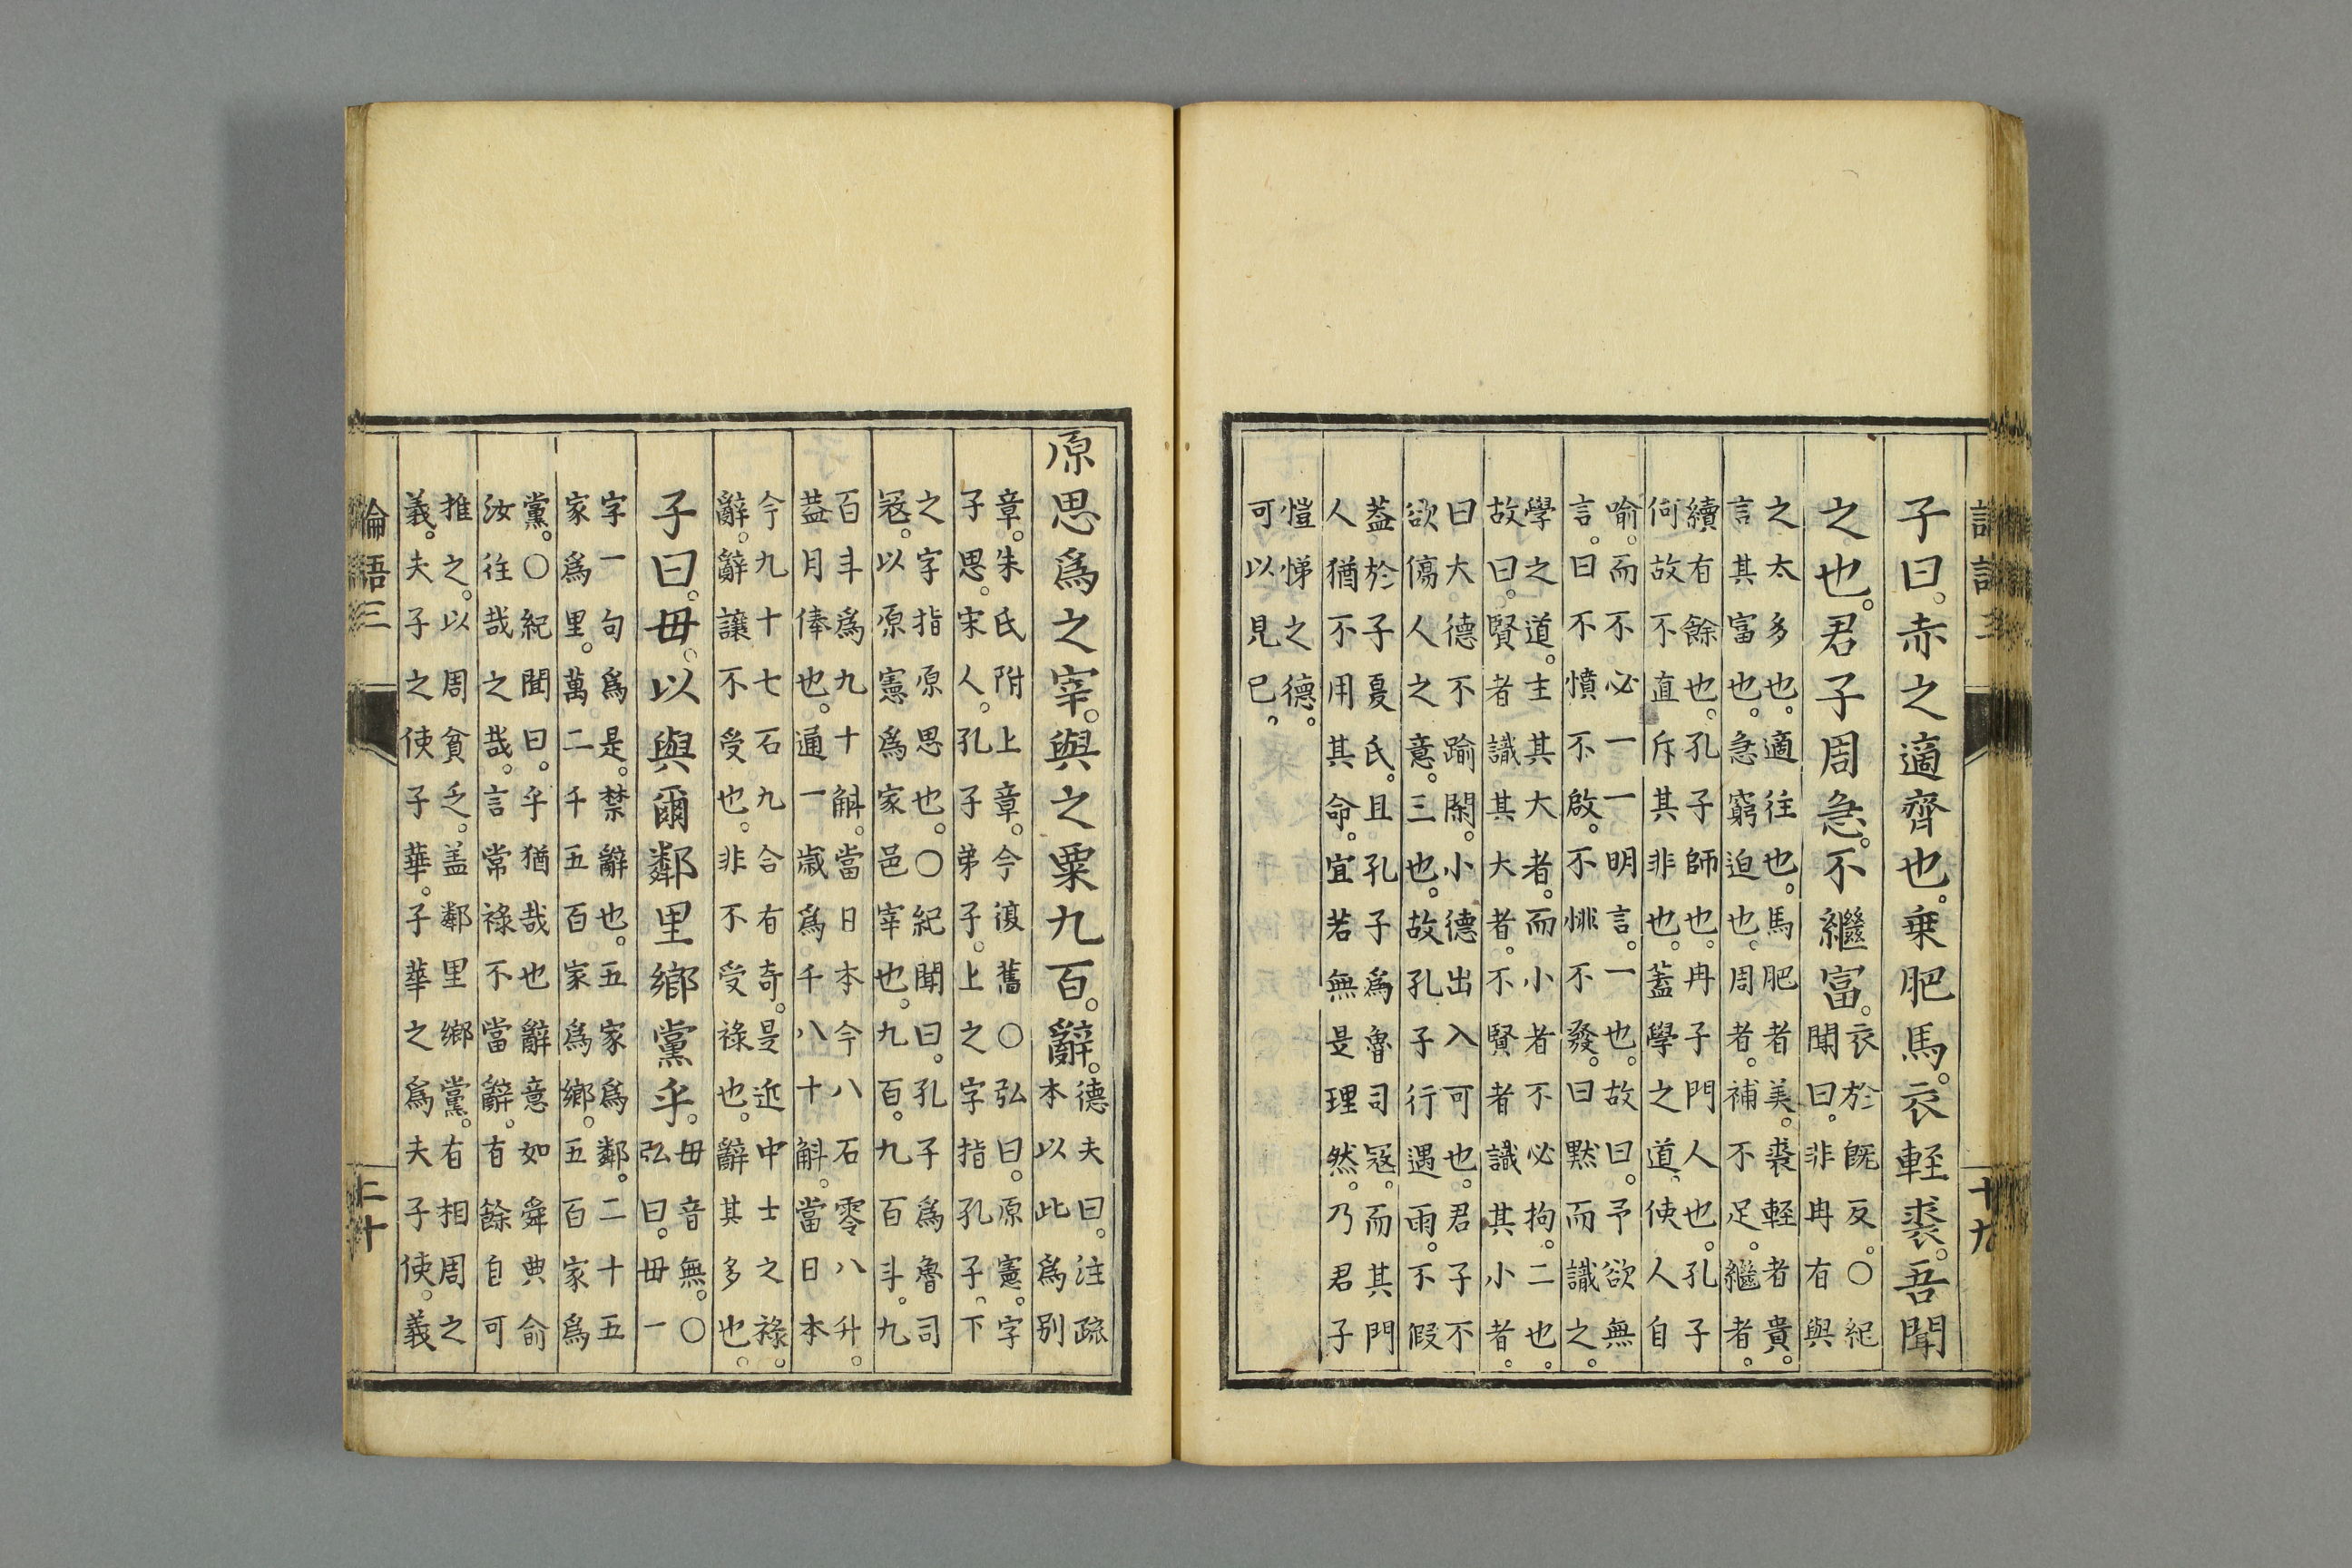 十九
子曰。赤之適齊也。乗肥馬。衣輕裘。吾聞
之也。君子周急。不繼富。
衣於既反。〇紀
聞曰。非冉有與
之太多也。適往也。馬肥者美。裘輕者貴。
言其富也。急窮迫也。周者。補不足。繼者。
續有餘也。孔子師也。冉子門人也。孔子
何故不直斥其非也。蓋學之道、使人自
喻。而不必一一明言。一也。故曰。予欲無
言。曰不憤不啟。不悱不發。曰默而識之。
學之道。主其大者。而小者不必拘。二也。
故曰。賢者識其大者。不賢者識其小者。
曰大德不踰閑。小德出入可也。君子不
欲傷人之意。三也。故孔子行遇雨。不假
葢於子夏氏。且孔子爲魯司冦。而其門
人猶不用其命。宜若無是理然。乃君子
愷悌之德。
可以見已。
原思爲之宰。與之粟九百。辭。
德夫曰。注疏
本以此爲別
章。朱氏附上章。今復舊〇弘曰。原憲。字
子思。宋人。孔子弟子。上之字指孔子、下
之字指原思也。〇紀聞曰。孔子爲魯司
冦。以原憲爲家邑宰也。九百。九百斗。九
百斗爲九十斛。當日本今八石零八升。
葢月俸也。通一歲爲千八十斛。當日本
今九十七石九合有奇。是近中士之祿。
辭。辭讓不受也。非不受祿也。辭其多也。
子曰。毋。以與爾鄰里鄉黨乎。
毋音無。〇
弘曰。毋一
字一句爲是。禁辭也。五家爲鄰。二十五
家爲里。萬二千五百家爲鄉。五百家爲
黨。〇紀聞曰。乎猶哉也。辭意如舜典俞
汝往哉之哉。言常祿不當辭。有餘自可
推之。以周貧乏。盖鄰里鄉黨。有相周之
義。夫子之使子華。子華之爲夫子使。義
論語三
二十